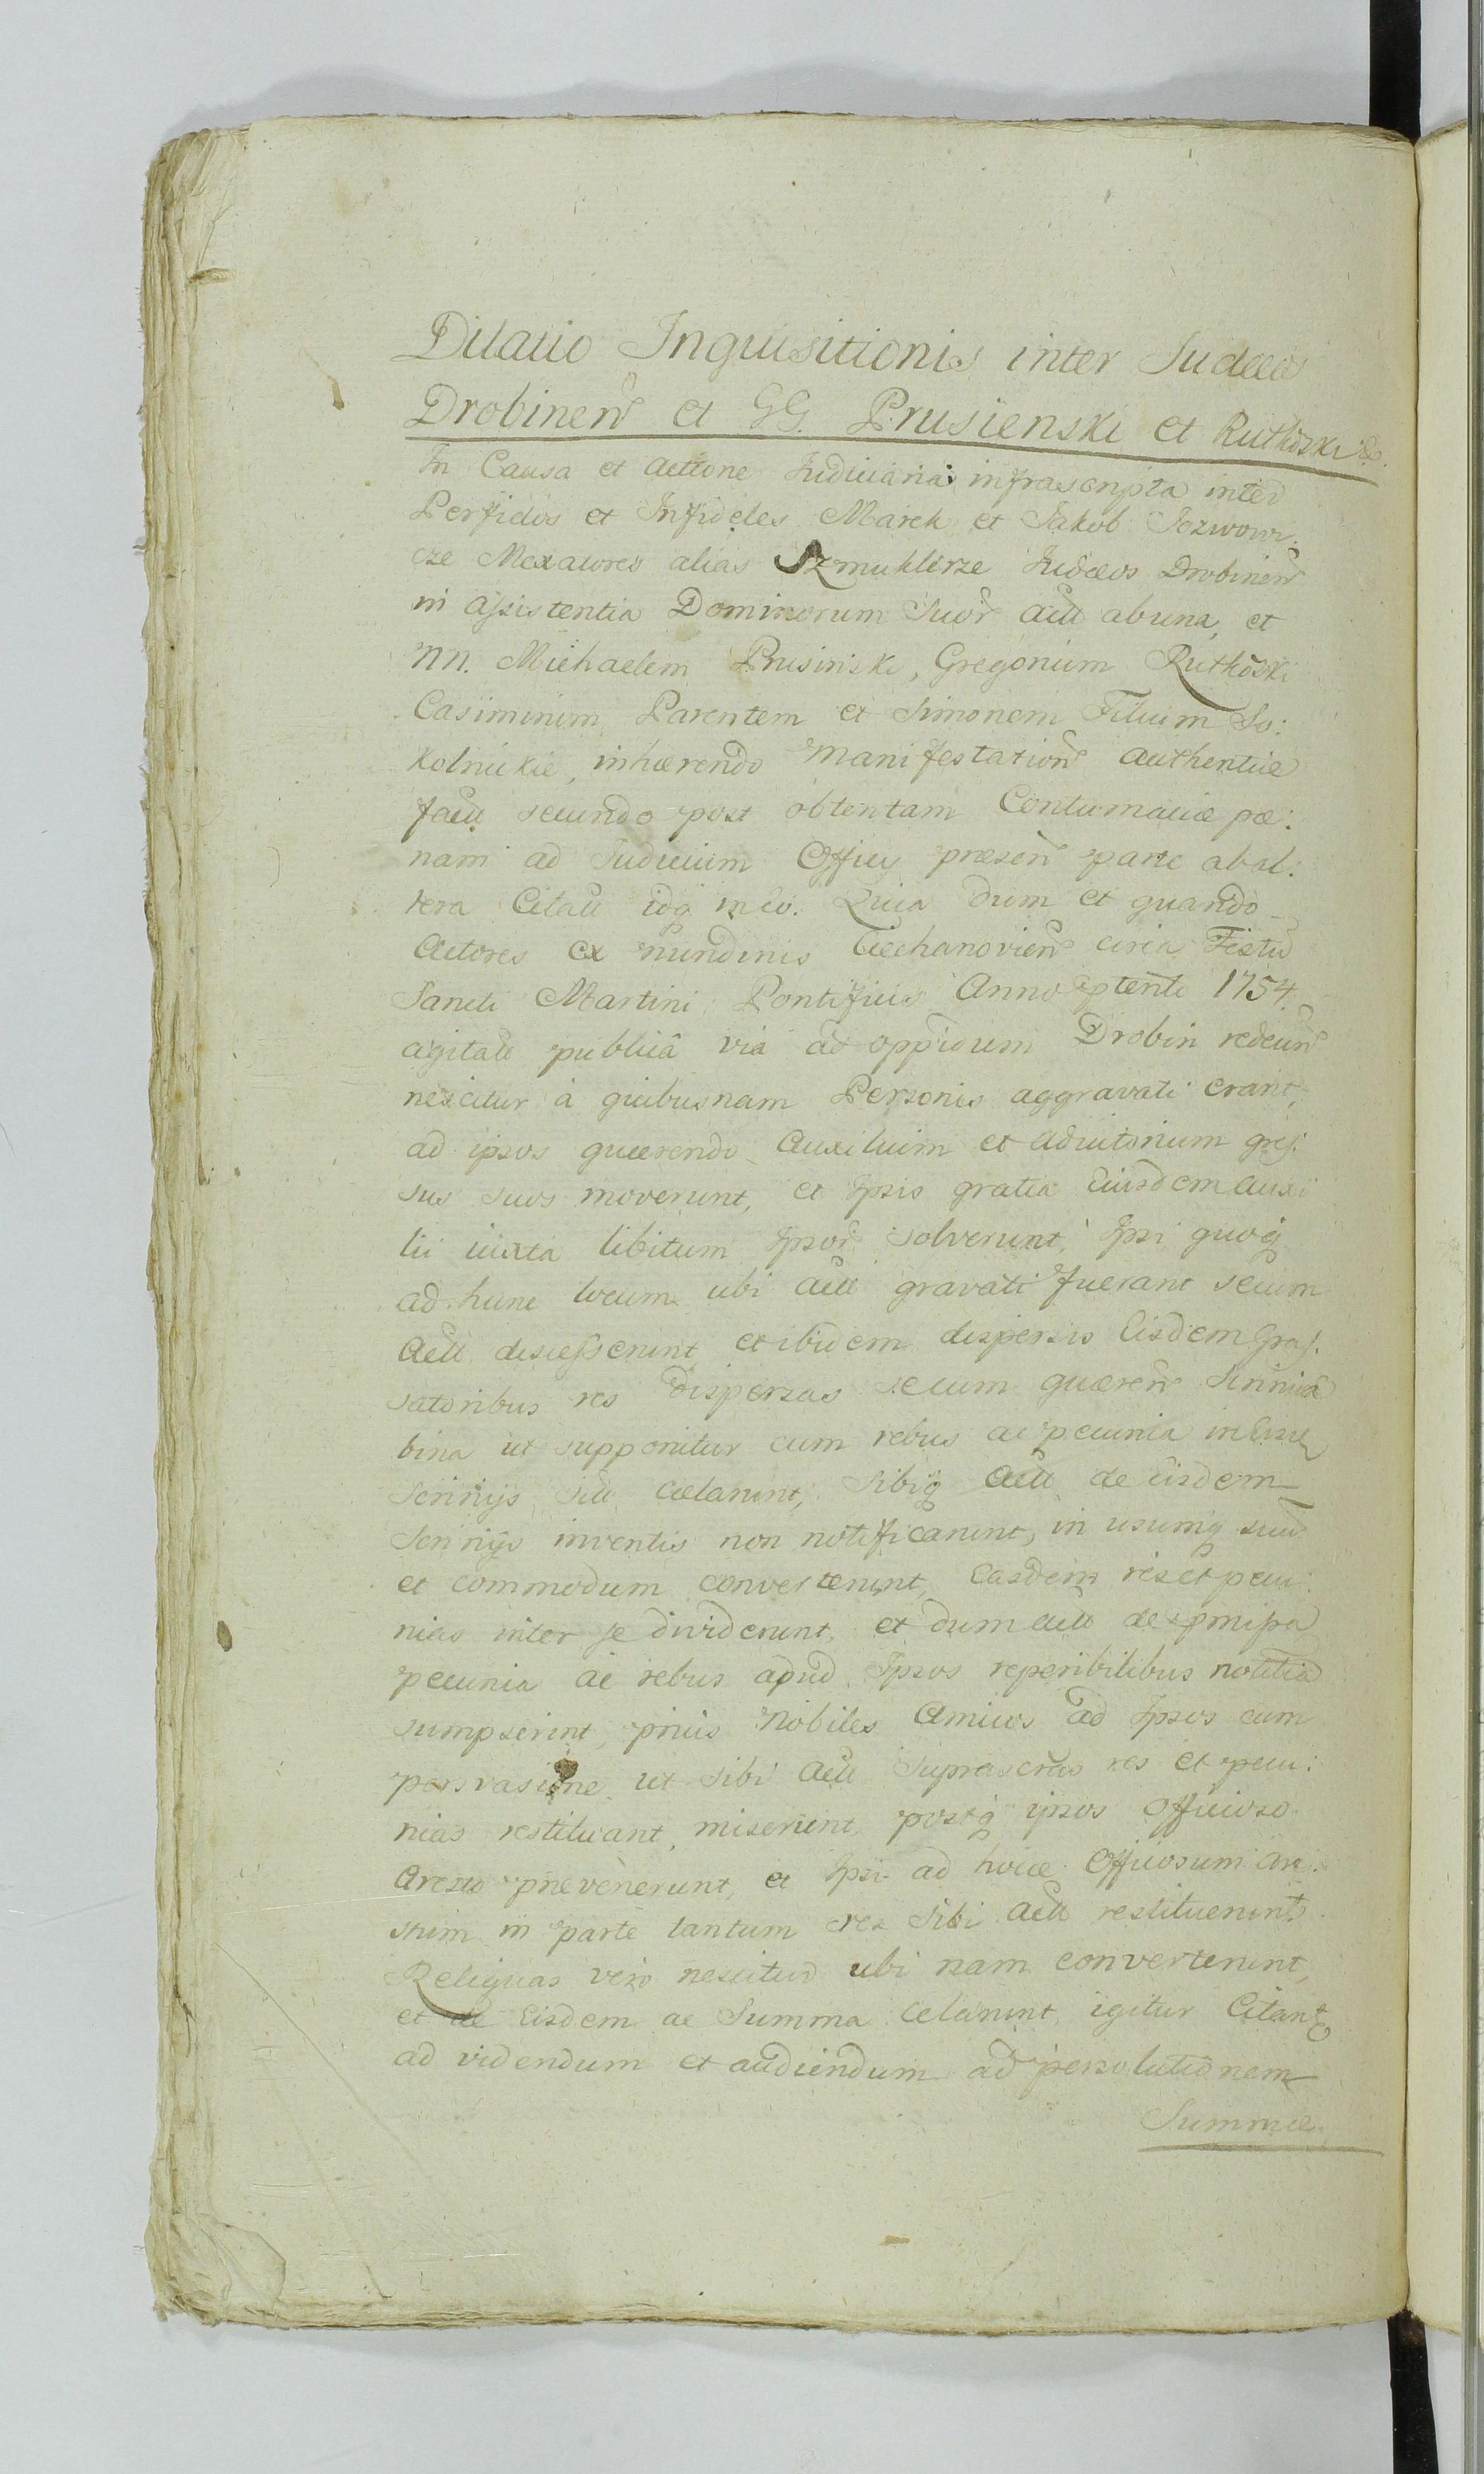 Dilatio Inquisitionis inter Judæos
Drobinen et GG. Prusienski et Rutkoski &.
In Causa et Actione Judiciaria infrascripta inter
Perfidos et Infideles Marek et Jakob Jozwowi:
cze Mercatores alias Szmuklerze Judæos Drobinen
in assistentia Dominorum suor Act ab una, et
NN. Michaelem Prusinski, Gregorium Rutkoski
Casimirum Parentem et Simonem Filium So:
kolnickie, inhærendo Manifestation authenticæ
fact secundo post obtentam Contumaciæ pæ:
nam ad Judicium Officij præsen parte ab al:
tera Citatt idq in eo. Quia dum et quando
Actores ex nundinis Ciechanovien circa Festu
Sancti Martini Pontificis Anno ptenti 1754
agitatt publicâ via ad oppidum Drobin redeun
nescitur à quibusnam Personis aggravati erant,
ad ipsos quærendo Auxilium et adiutorium gres:
sus suos moverunt, et Ipsis gratia Eiusdem auxi
lii iuxta libitum Ipsor solverunt, Ipsi quoq
ad hunc locum ubi Act gravati fuerant secum
Act discesserunt et ibidem dispersis Eisdem Gras:
satoribus res dispersas secum quæren scrinia
bina ut supponitur cum rebus ac pecunia in
scrinijs celarunt, sibiq Act de Eisdem
scrinijs inventis non notificarunt, in usumq suu
et commodum converterunt, Easdem res et pecu:
nias inter se dividerunt, et dum Act de pmissa
pecunia ac rebus apud Ipsos reperibilibus notitia
sumpserint, prius Nobiles Amicos ad Ipsos cum
persvasione ut sibi Act suprascrtas res et pecu:
nias restituant, miserunt postq ipsos Officioso
Aresto prævenerunt, et Ipsi ad hocce Officiosum Are:
stum in parte tantum res sibi Act restituerunt
Reliquas vero nescitur ubi nam converterunt,
et de Eisdem ac Summa celarunt, igitur Citant
ad videndum et audiendum ad persolutionem
Summæ